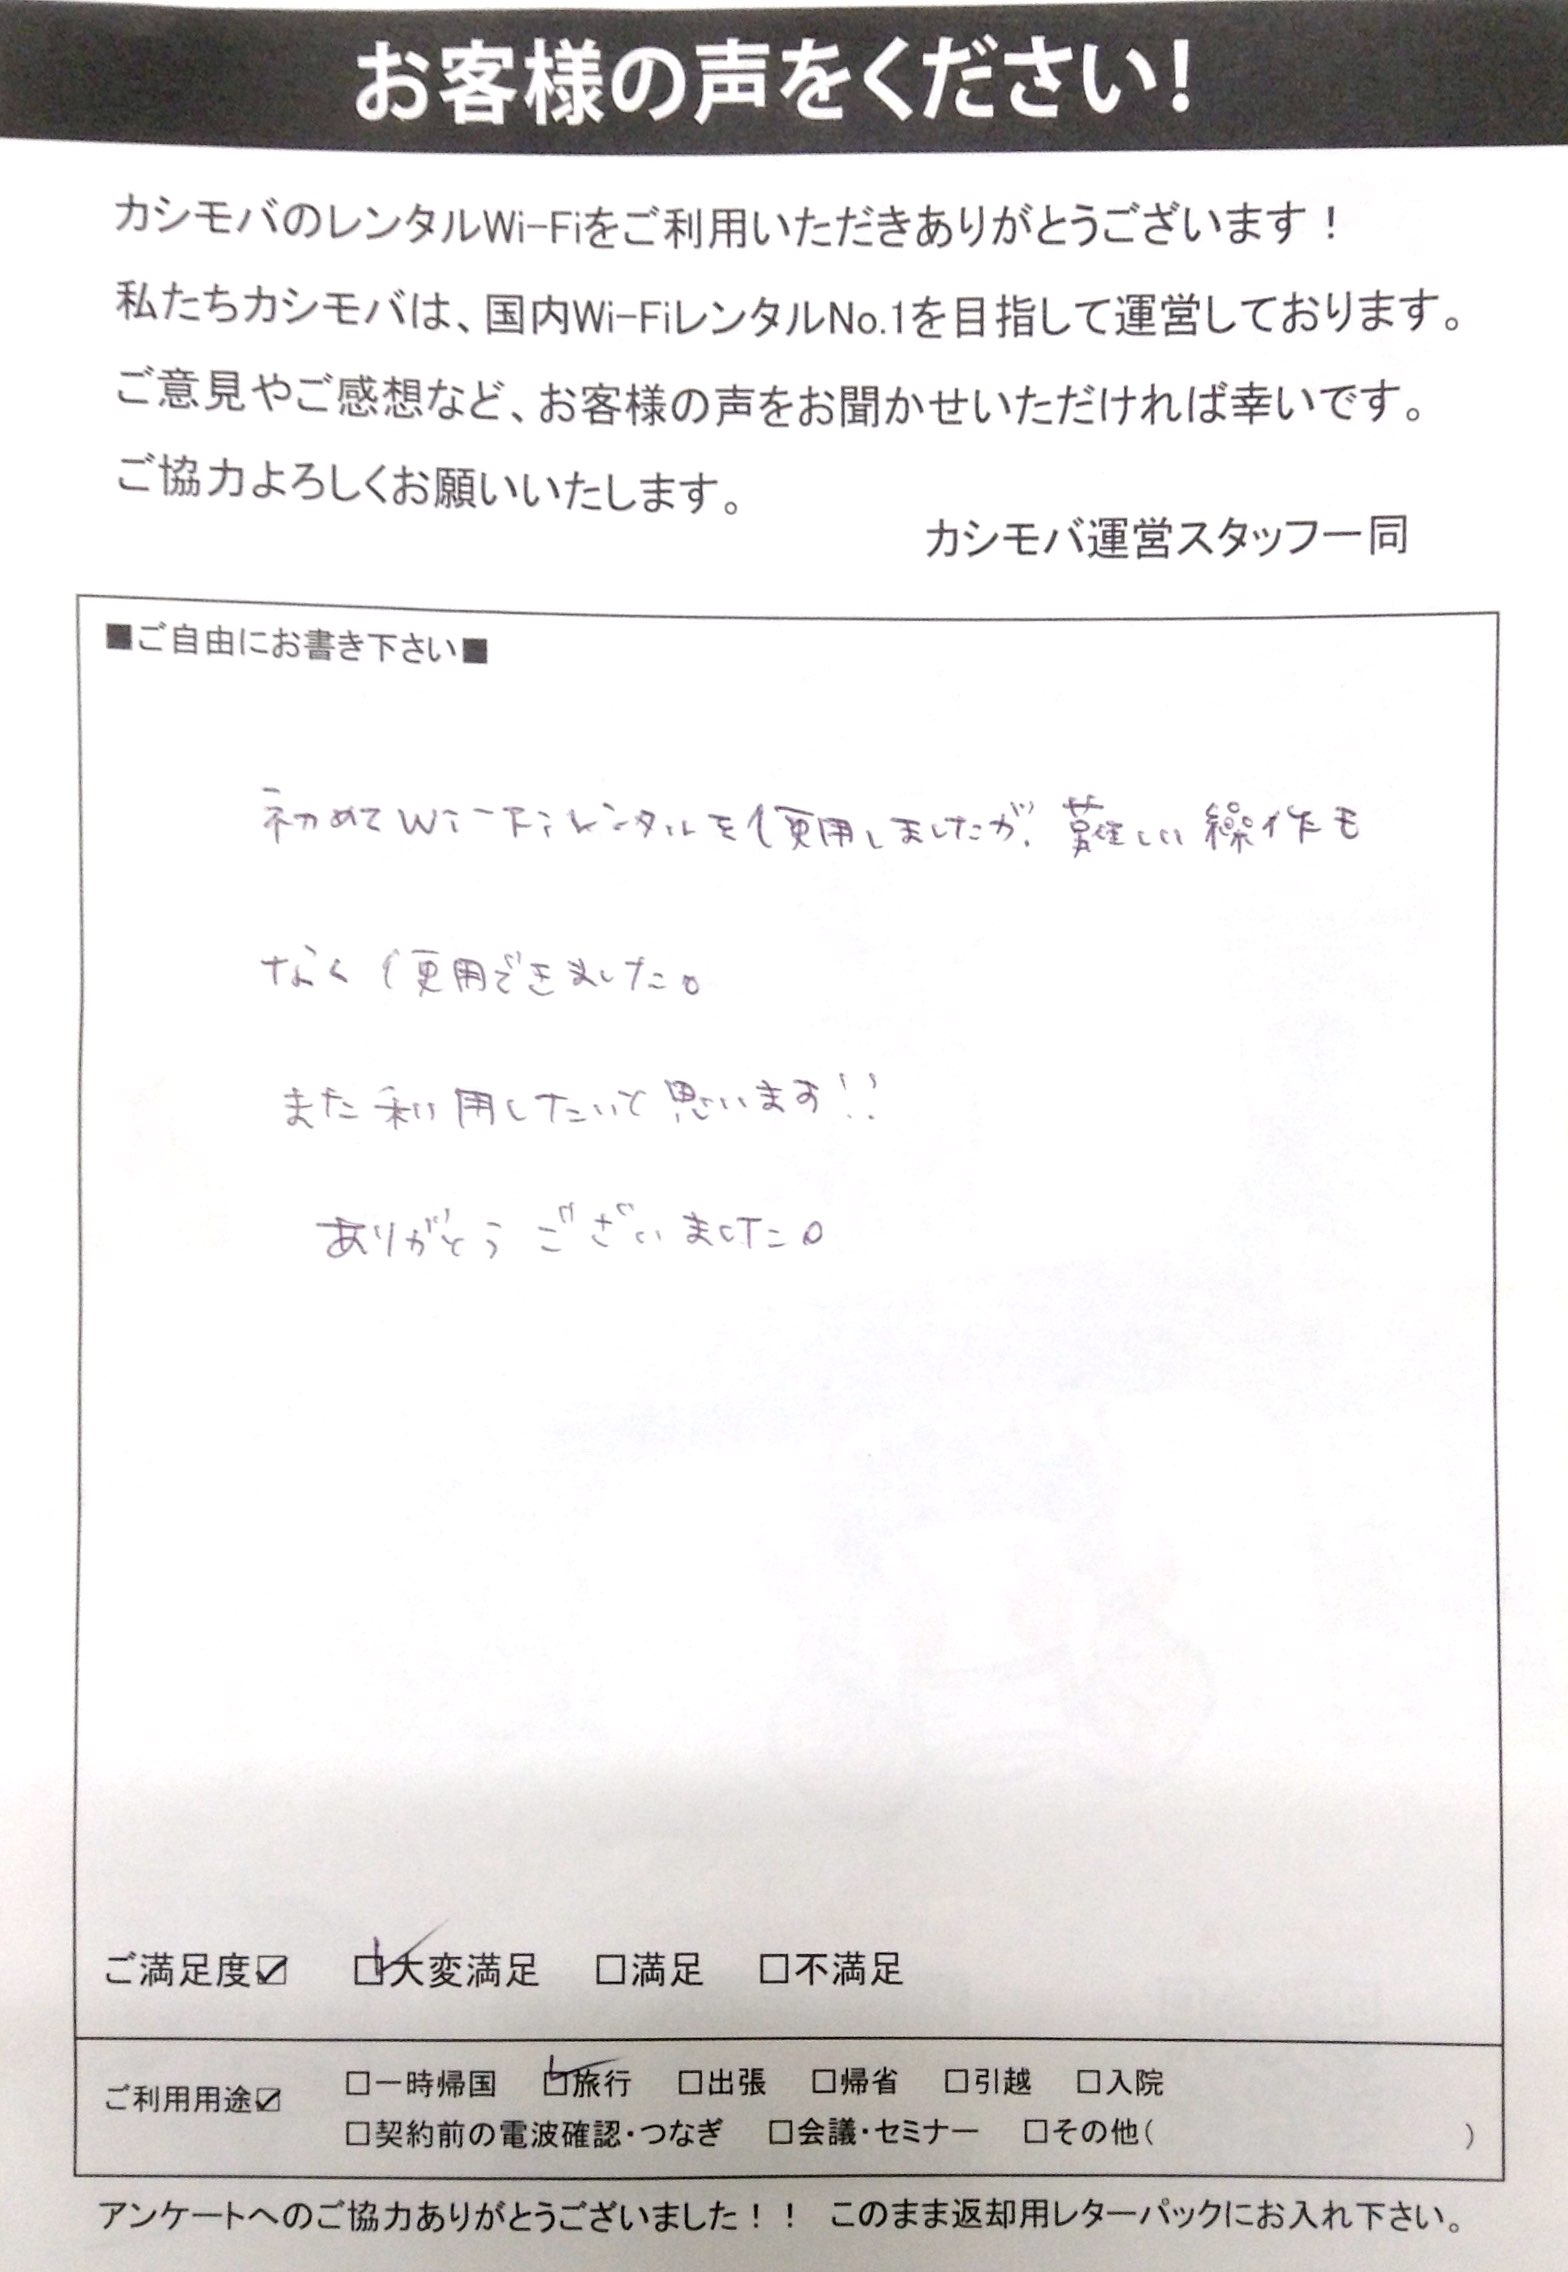 お客様の声をください!
カシモバのレンタルWi-Fiをご利用いただきありがとうございます！
私たちカシモバは、国内Wi-FiレンタルNo.1を目指して運営しております。
ご意見やご感想など、お客様の声をお聞かせいただければ幸いです。
ご協力よろしくお願いいたします。
カシモバ運営スタッフ一同
■ご自由にお書き下さい■
初めてWi-Fiレンタルを使用しましたが、難しい操作も
なく使用できました。
また利用したいと思います!!
ありがとうございました。
ご満足度☑ ☑大変満足 □満足 □不満足
ご利用用途☑ □一時帰国 ☑旅行 □出張 □帰省 □引越 □入院
□契約前の電波確認・つなぎ □会議・セミナー □その他( )
アンケートへのご協力ありがとうございました！！ このまま返却用レターパックにお入れ下さい。